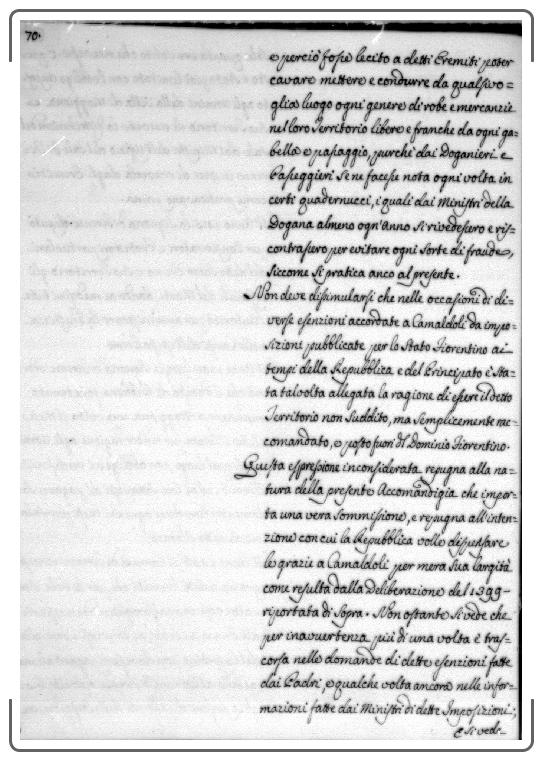 70.
e perciò fosse lecito a detti Eremiti poter
cavare mettere e condurre da qualsivo=
glia luogo ogni genere di robe e mercanzie
nel loro Territorio libere e franche da ogni ga=
bella e passaggio, purchè dai Doganieri e
Passeggieri se ne facesse nota ogni volta in
certi quadernucci, i quali dai Ministri della
Dogana almeno ogn'anno si rivedessero e ris=
contrassero per evitare ogni sorte di fraude,
siccome si pratica anco al presente.
Non deve dissimularsi che nelle occasioni di di=
verse esenzioni accordate a Camaldoli da impo=
sizioni pubblicate per lo Stato Fiorentino ai
tempi della Repubblica e del Principato è Sta=
ta talvolta allegata la ragione di essere il detto
Territorio non Suddito, ma semplicemente rac=
comandato, e posto fuori di Dominio Fiorentino.
Questa espressione inconsiderata repugna alla na=
tura della presente Accomandigia che impor=
ta una vera sommissione, e repugna all'inten=
zione con cui la Repubblica volle dispensare
le grazie a Camaldoli per mera sua largità
come resulta dalla Deliberazione del 1399=
riportata di sopra. Non ostante si vede che
per inavvertenza più di una volta è tras=
corsa nelle domande di dette esenzioni fatte
dai Padri, e qualche volta ancora nelle infor=
mazioni fatte dai Ministri di dette Imposizioni;
E si vede